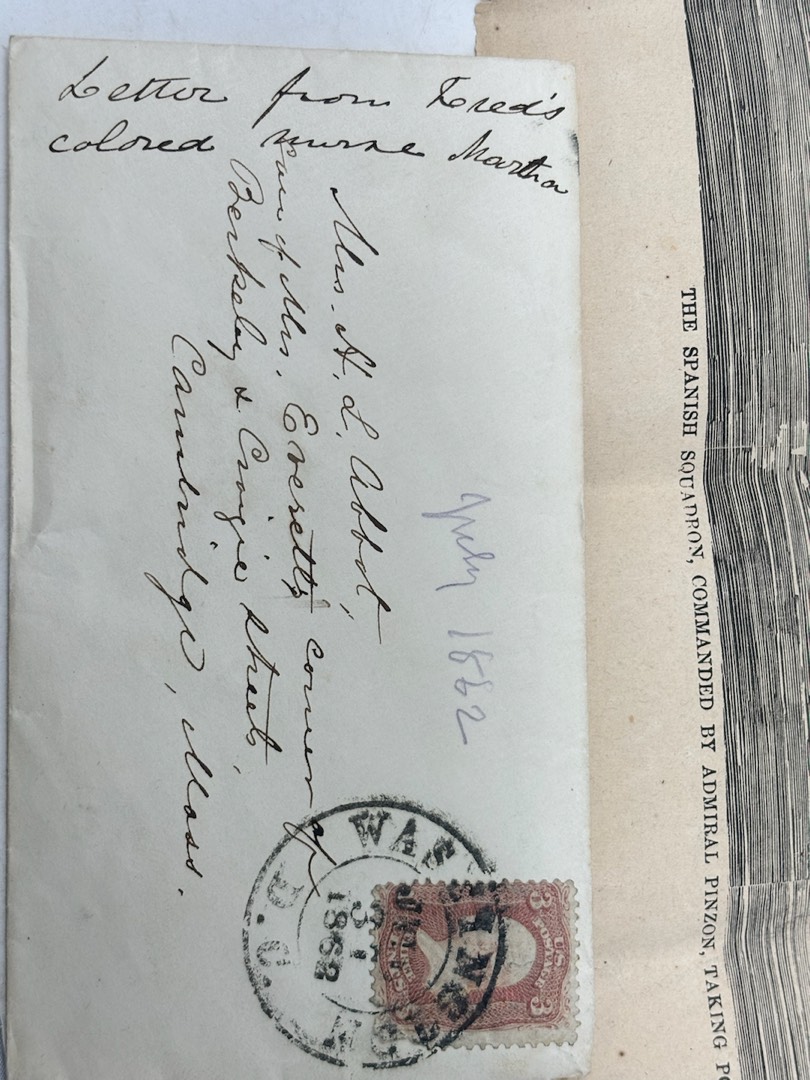 Letter from Fred's
colored nurse Martha
Mrs. H. L. Abbot,
Care of Mrs. Everett, corner of
Berkeley & Craigie streets,
Cambridge, Mass.
July 1862
WASHINGTON
D.C.
JUL
31
1862
U.S. POSTAGE
3 3
THE SPANISH SQUADRON, COMMANDED BY ADMIRAL PINZON, TAKING